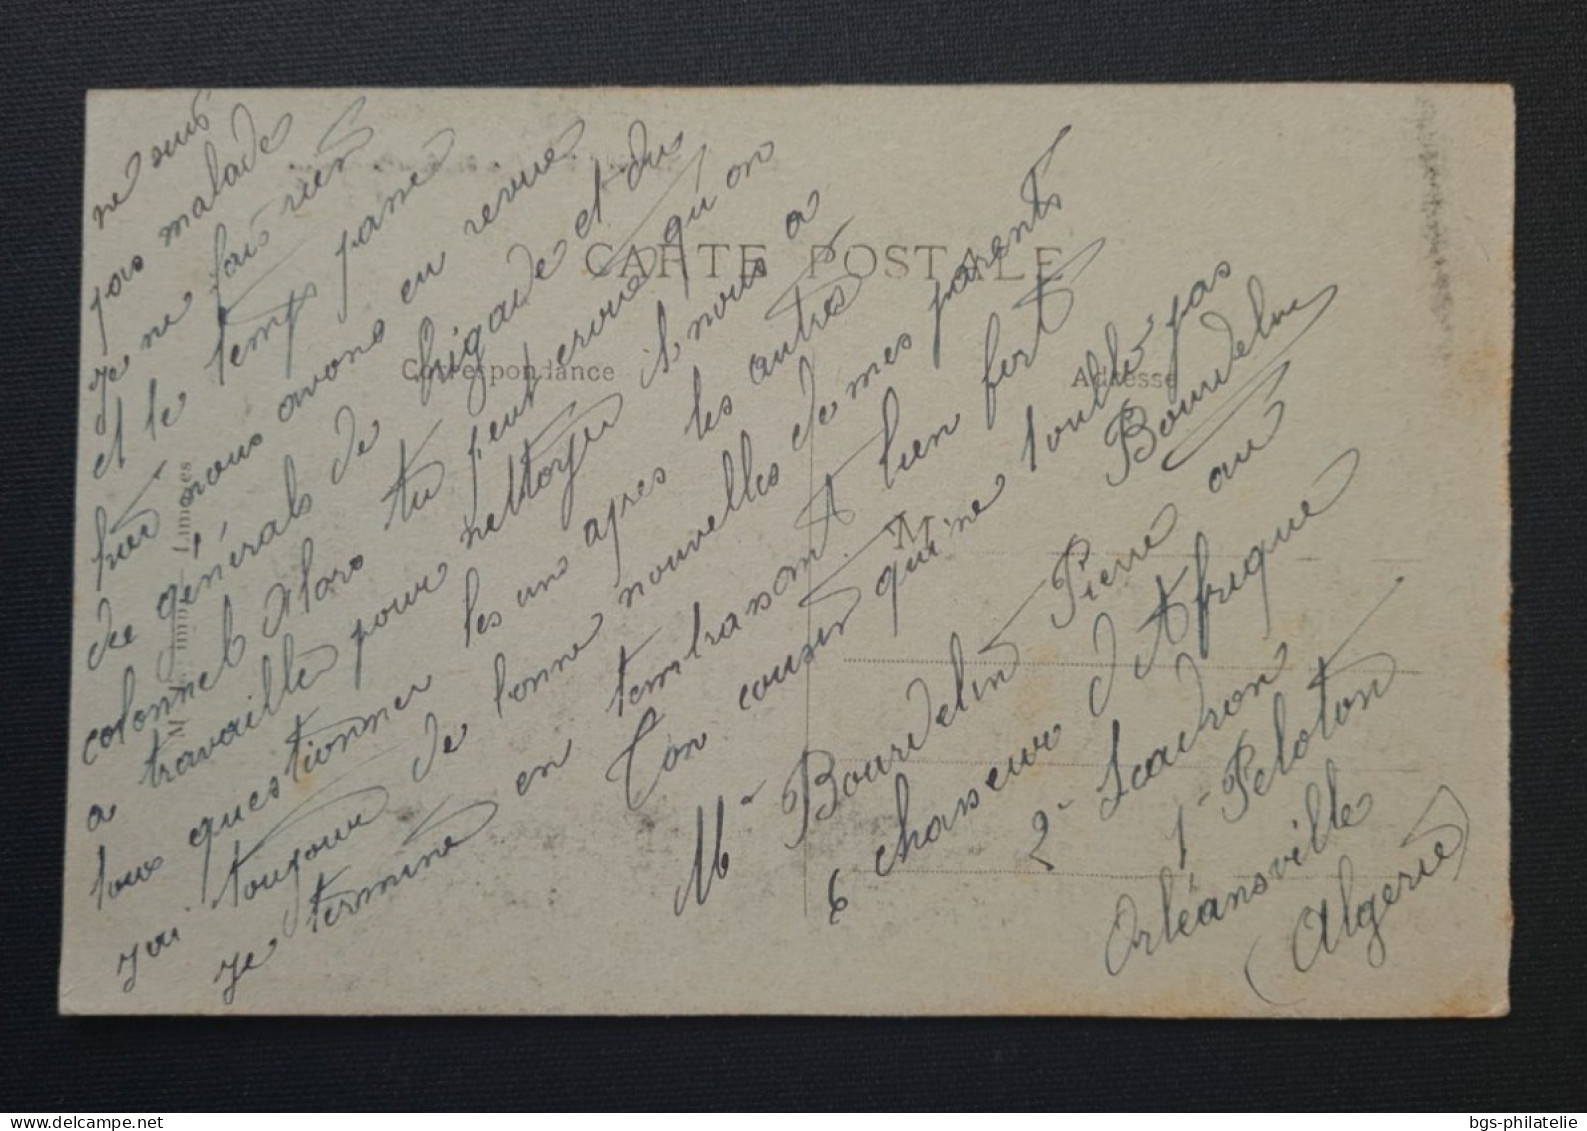 CARTE POSTALE
Correspondance
Adresse
M
Limoges
ne suis
pas malade
je ne fais rien
et le temps passe
hier nous avons eu revue
de générals de brigade et du
colonnel alors tu peut croire qu'on
a travaillé pour nettoyer il nous a
tous questionner les un apres les autres
j'ai toujour de bonne nouvelles de mes parents
je termine en tembrasant bien fort
Ton cousin qui ne toublie pas
Bourdelin
Mr Bourdelin Pierre au
6 chasseur d'Afrique
2e Escadron
1er Peloton
Orléansville
(Algerie)
bgs-philatelie
bgs-philatelie